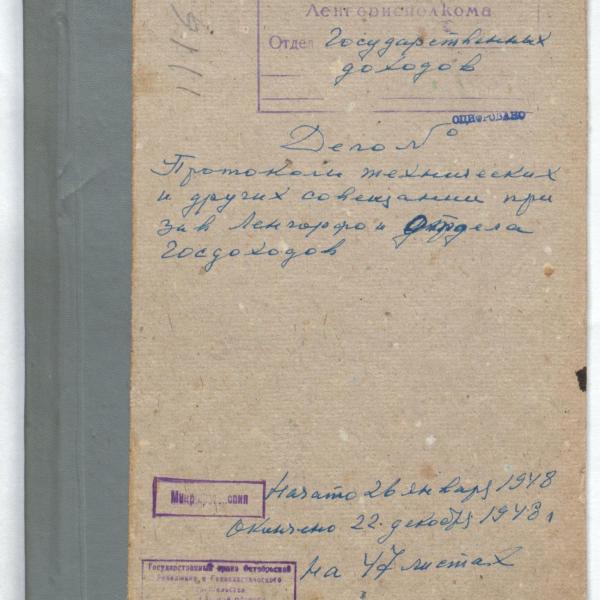 Ленгорисполкома
Отдел Государственных
доходов
ОЦИФРОВАНО
Дело №
Протоколы технических
и других совещаний при
зав Ленгорфо и Отдела
Госдоходов
Начато 26 января 1948
Окончено 22. декабря 1948 г
на 47 листах
Государственный архив Октябрьской
Революции и Социалистического